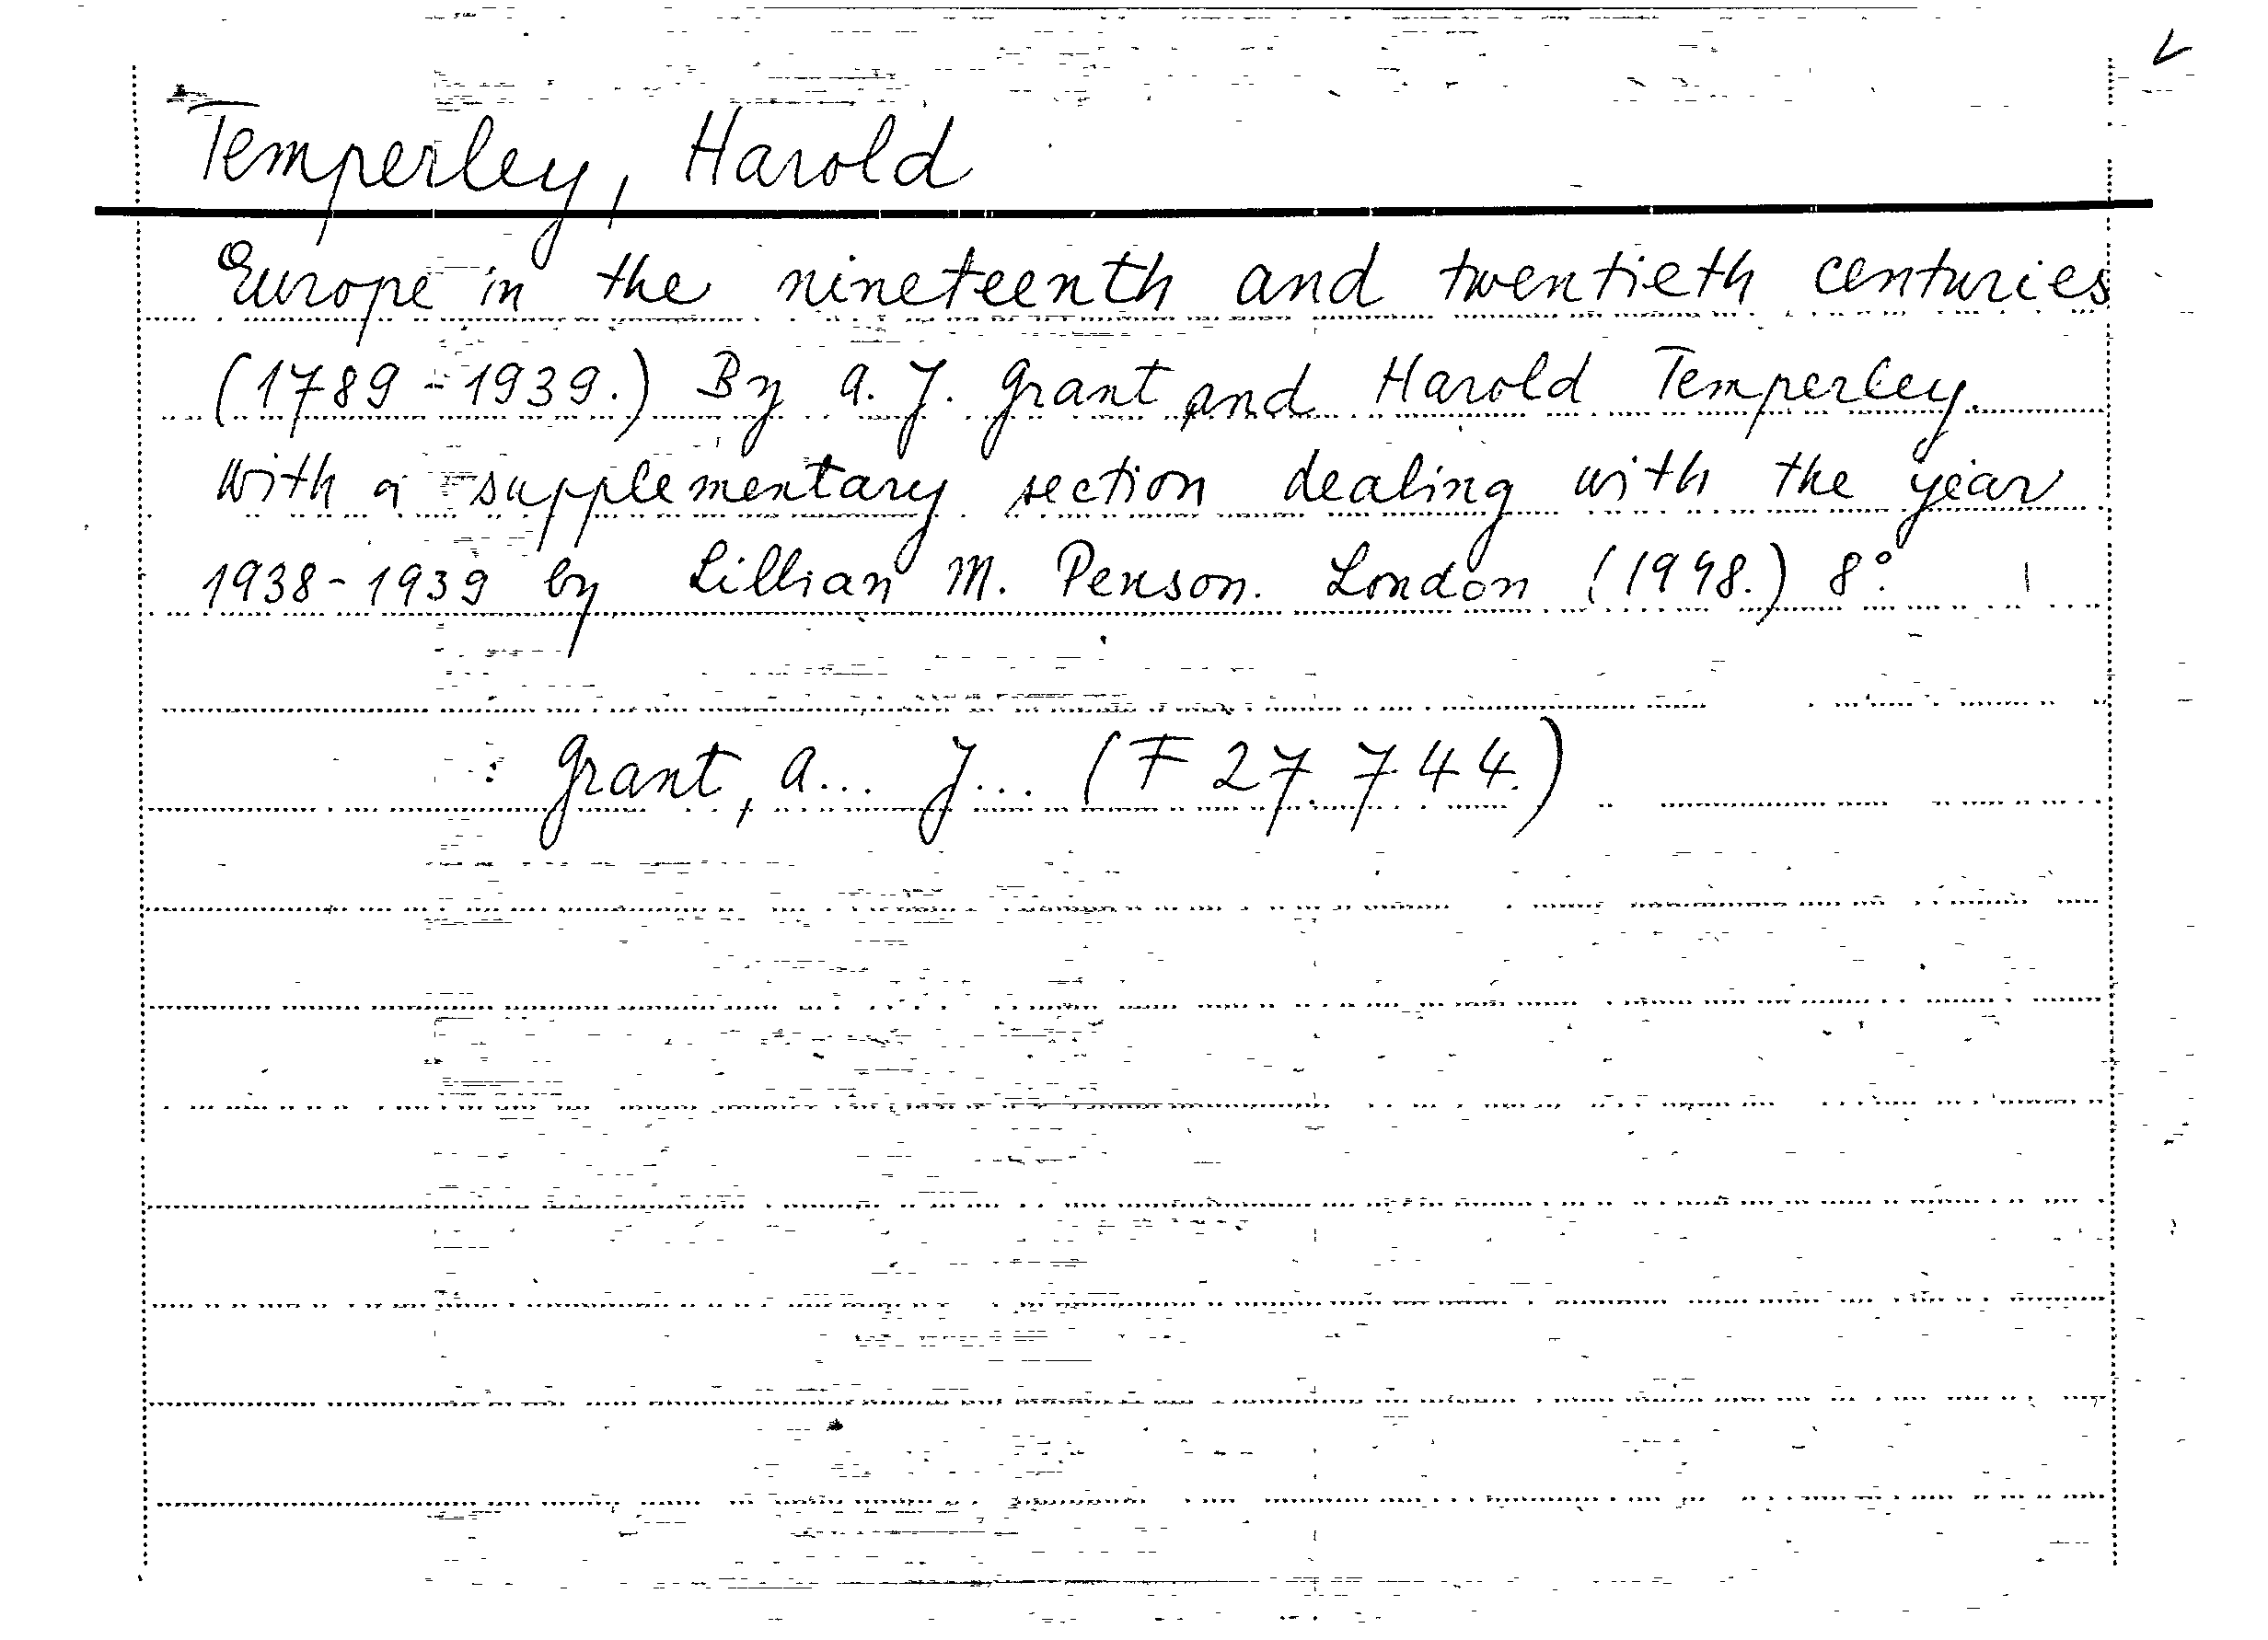 Temperley, Harold
Europe in the nineteenth and twentieth centuries
(1789-1939.) By A. J. Grant and Harold Temperley.
With a supplementary section dealing with the year
1938-1939 by Lillian M. Penson. London (1948.) 8°.
Grant, A... J... (F 27.744.)